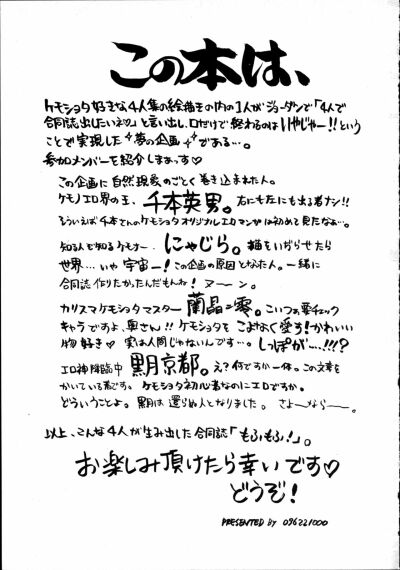 この本は、
ケモショタ好きな4人集の絵描きの内の1人がジョーダンで「4人で
合同誌出したいネッ」と言い出し、口だけで終わるのはいやじゃー!!という
ことで実現した夢の企画である…。
参加メンバーを紹介しまぁっす♡
この企画に自然現象のごとく巻き込まれた人。
ケモノエロ界の王、千本英男。右にも左にも出る者ナシ!!
そういえば千本さんのケモショタオリジナルエロマンガは初めて見たなぁ…。
知る人ぞ知るケモナー、にゃじら。描もいぢらせたら
世界…いや宇宙一!この企画の原因となた人。一緒に
合同誌作りたかったんだもんね! ヌーン。
カリスマケモショタマスター蘭晶=零。こいつぁ要チェック
キャラですよ、奥さん!!ケモショタをこよなく愛す!かわいい
物好き♡実は人間じゃないんです…。しっぽが…!!!?
エロ神降臨中 黒月京都。え?何ですか一体。この文章を
かいている者です。ケモショタ初心者なのにエロですか。
どういうことよ。黒月は還らぬ人となりました。さよーならー。
以上、こんな4人が生み出した合同誌「もふもふ!」。
お楽しみ頂けたら幸いです♡
どうぞ!
PRESENTED BY 096221000